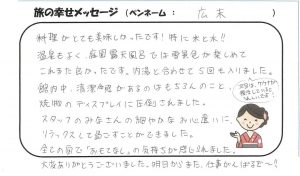 旅の幸せメッセージ（ペンネーム： 広末 ）
料理がとても美味しかったです！特に米と水!!
温泉もよく、庭園露天風呂では雪景色が楽しめて
これまた良かったです。内湯と合わせて5回も入りました。
館内中、清潔感があるのはもちろんのこと、
焼物のディスプレイに圧倒されました。
スタッフのみなさんの細やかな心遣いに、
リラックスして過ごすことができました。
全ての面で"おもてなし"の気持ちが感じられました。
大変ありがとうございました。明日からまた、仕事がんばるぞ〜!!